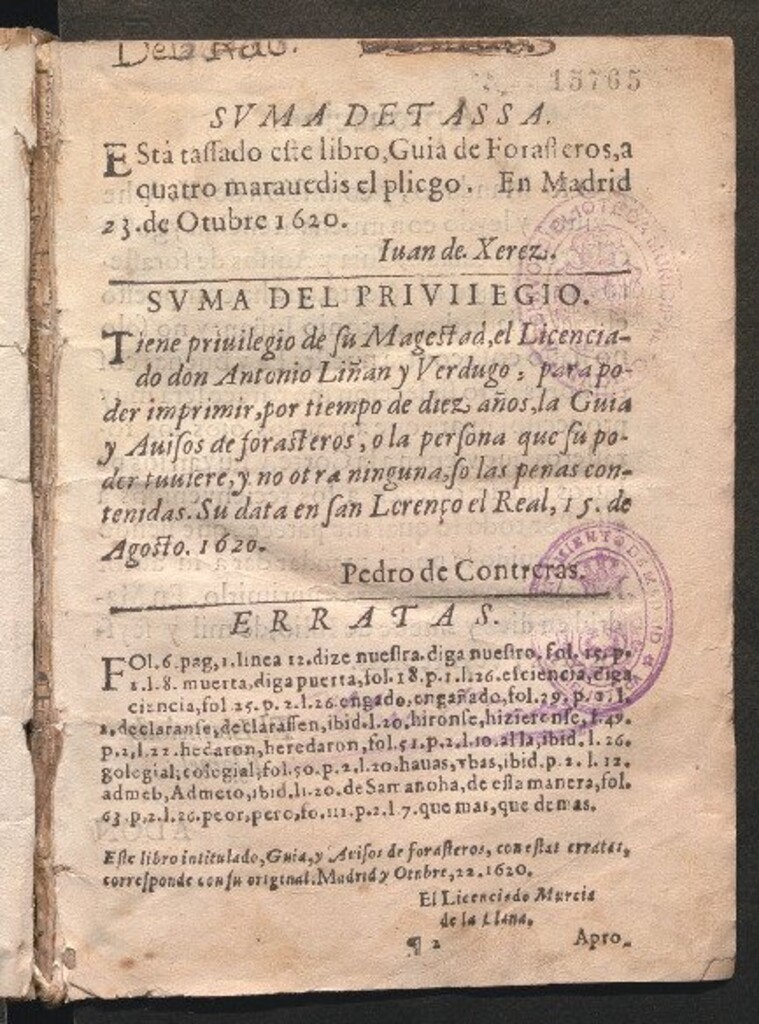 15765
SVMA DE TASSA.
ESta taſſado eſte libro, Guia de Foraſteros, a
quatro marauedis el pliego. En Madrid
23. de Otubre 1620.
Iuan de Xerez.
SVMA DEL PRIVILEGIO.
Tiene priuilegio de ſu Mageſtad, el Licencia-
do don Antonio Liñan y Verdugo, para po-
der imprimir, por tiempo de diez años, la Guia
y Auiſos de foraſteros, o la perſona que ſu po-
der tuuiere, y no otra ninguna, ſo las penas con-
tenidas. Su data en ſan Lorenço el Real, 15. de
Agoſto. 1620.
Pedro de Contreras.
ERRATAS.
FOl. 6. pag, 1. linea 12. dize nueſtra. diga nueſtro, fol. 15, p.
1. l. 8. muerta, diga puerta, fol. 18. p. 1. l. 26. eſciencia, diga
ciencia, fol 25. p. 2. l. 26. engado, engañado, fol. 29. p. 2. l.
2, declaranſe, declaraſſen, ibid. l. 20. hironſe, hizieronſe, f. 49.
p. 2, l. 22. hedaron, heredaron, fol. 51. p. 2. l. 10. al la, ibid. l. 26.
golegial, colegial, fol. 50. p. 2. l. 20. hauas, vbas, ibid. p. 2. l. 12.
admeb, Admeto, ibid. l. 20. de Sarranoha, de eſta manera, fol.
63. p. 2. l. 26. peor, pero, fo. 111. p. 2. l. 7. que mas, que de mas.
Eſte libro intitulado, Guia, y Auiſos de foraſteros, con eſtas erratas,
correſponde con ſu original. Madrid y Otubre, 22. 1620.
El Licenciado Murcia
de la Llana.
¶ 2
Apro-